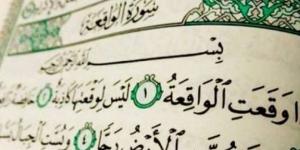 سُورَةُ الوَاقِعَةِ
بِسْمِ ٱللَّهِ ٱلرَّحْمَٰنِ ٱلرَّحِيمِ
وَقَعَتِ ٱلْوَاقِعَةُ ١ لَيْسَ لِوَقْعَتِهَا كَاذِبَةٌ ٢ خَافِضَةٌ
ٱلْأَرْضُ رَجًّا ٤ وَبُسَّتِ ٱلْجِبَالُ